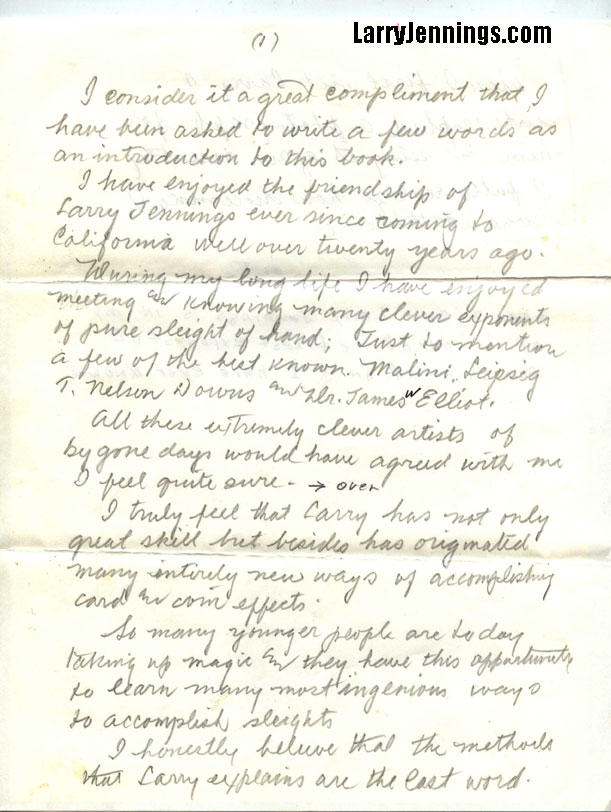 LarryJennings.com
(1)
I consider it a great compliment that I
have been asked to write a few words as
an introduction to this book.
I have enjoyed the friendship of
Larry Jennings ever since coming to
California well over twenty years ago.
During my long life I have enjoyed
meeting and knowing many clever exponents
of pure sleight of hand; Just to mention
a few of the best known. Malini, Leipsig
T. Nelson Downs and Dr. James W Elliot.
All these extremely clever artists of
by gone days would have agreed with me
I feel quite sure. → over
I truly feel that Larry has not only
great skill but besides has originated
many entirely new ways of accomplishing
card and coin effects.
So many younger people are today
taking up magic and they have this opportunity
to learn many most ingenious ways
to accomplish sleights
I honestly believe that the methods
that Larry explains are the last word.